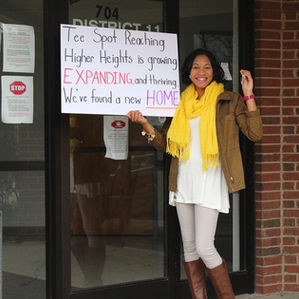 704
DISTRICT 11
Tee Spot Reaching
Higher Heights is growing
EXPANDING, and thriving
We've found a new HOME
STOP